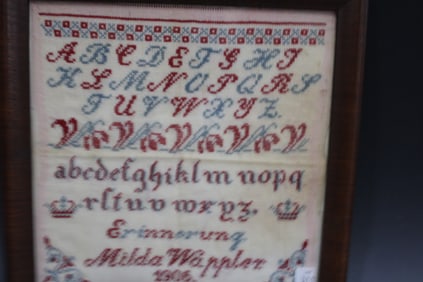 A B C D E F G H I
K L M N O P Q R S
T U V W X Y Z.
abcdefghiklmnopq
rstuvwxyz.
Erinnerung
Milda Wäppler